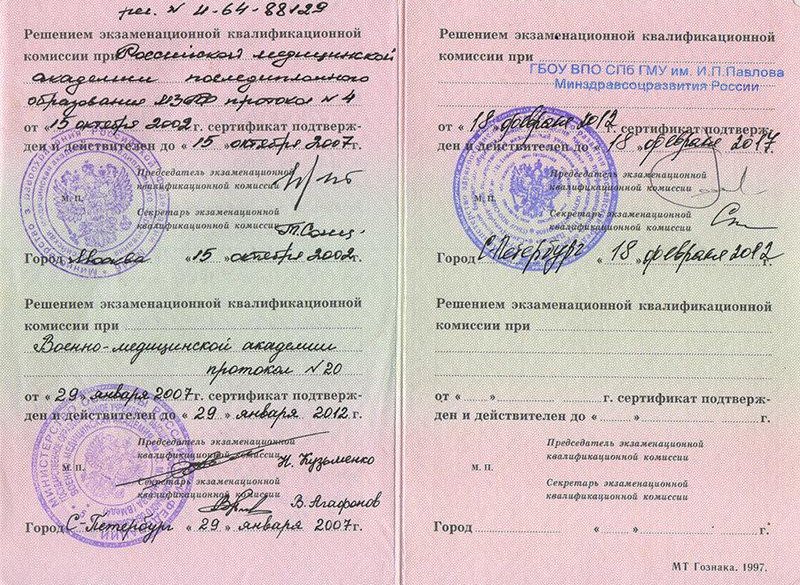 рег. № 4-64-88129
Решением экзаменационной квалификационной
комиссии при Российской медицинской
академии последипломного
образования МЗ РФ протокол № 4
от « 15 октября 2002 г. сертификат подтверж-
ден и действителен до « 15 » октября 2007 г.
Председатель экзаменационной
квалификационной комиссии
М. П.
Секретарь экзаменационной
квалификационной комиссии
Город Москва « 15 » октября 2002 г.
Решением экзаменационной квалификационной
комиссии при
Военно-медицинской академии
протокол № 20
от « 29 » января 2007 г. сертификат подтверж-
ден и действителен до « 29 » января 2012 г.
Председатель экзаменационной
квалификационной комиссии
Н. Кузьменко
М. П.
Секретарь экзаменационной
квалификационной комиссии
В. Агафонов
Город С-Петербург « 29 » января 2007 г.
Решением экзаменационной квалификационной
комиссии при
ГБОУ ВПО СПб ГМУ им. И.П.Павлова
Минздравсоцразвития России
от « 18 » февраля 2012 г. сертификат подтверж-
ден и действителен до « 18 » февраля 2017 г.
Председатель экзаменационной
квалификационной комиссии
М. П.
Секретарь экзаменационной
квалификационной комиссии
Город С.Петербург « 18 » февраля 2012 г.
Решением экзаменационной квалификационной
комиссии при
от « » г. сертификат подтверж-
ден и действителен до « » г.
Председатель экзаменационной
квалификационной комиссии
М. П.
Секретарь экзаменационной
квалификационной комиссии
Город « » г.
МТ Гознака. 1997.